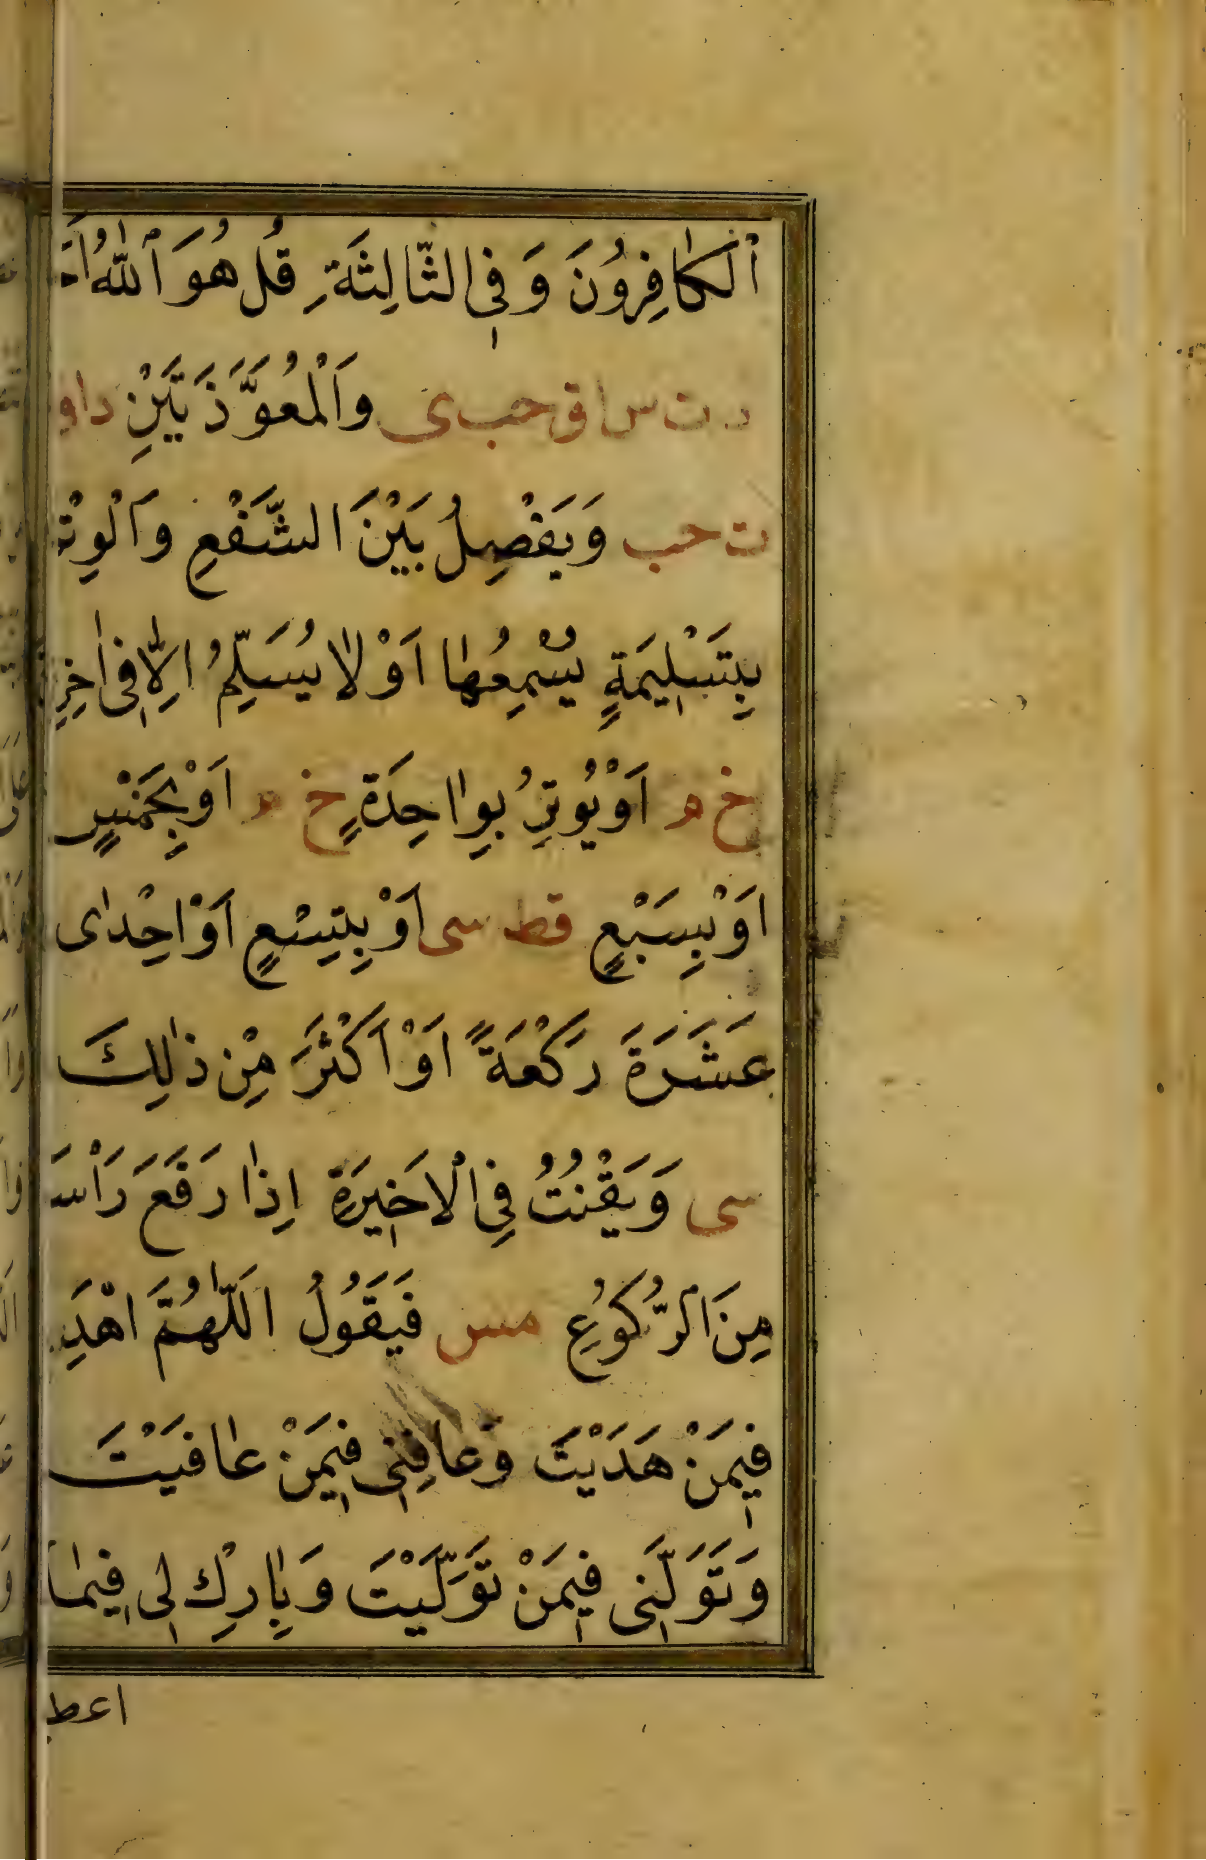 ٱلْكٰافِرُونَ وَفِى الثّٰالِثَةِ قُلْ هُوَ ٱللّٰهُ
د ت س ا ق حب ى وَالْمُعَوَّذَتَيْنِ
ت حب وَيَفْصِلُ بَيْنَ الشَّفْعِ وَالْوِتْ
بِتَسْلِيمَةٍ يُسْمِعُهٰا اَوْ لٰا يُسَلِّمُ اِلّٰا فِى اٰخِرِ
خ م اَوْ يُوتِرُ بِوٰاحِدَةٍ خ م اَوْ بِخَمْسٍ
اَوْ بِسَبْعٍ قط سى اَوْ بِتِسْعٍ اَوْ اِحْدٰى
عَشَرَةَ رَكْعَةً اَوْ اَكْثَرَ مِنْ ذٰلِكَ
سى وَيَقْنُتُ فِى الْاَخِيرَةِ اِذٰا رَفَعَ رَاْسَ
مِنَ الرُّكُوعِ مس فَيَقُولُ اَللّٰهُمَّ اهْدِ
فِيمَنْ هَدَيْتَ وَعٰافِنِى فِيمَنْ عٰافَيْتَ
وَتَوَلَّنِى فِيمَنْ تَوَلَّيْتَ وَبٰارِكْ لِى فِيمٰا
اعط